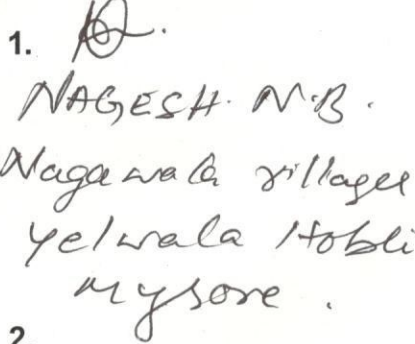 1.
NAGESH. N.B.
Nagawala village
Yelwala Hobli
Mysore.
2.